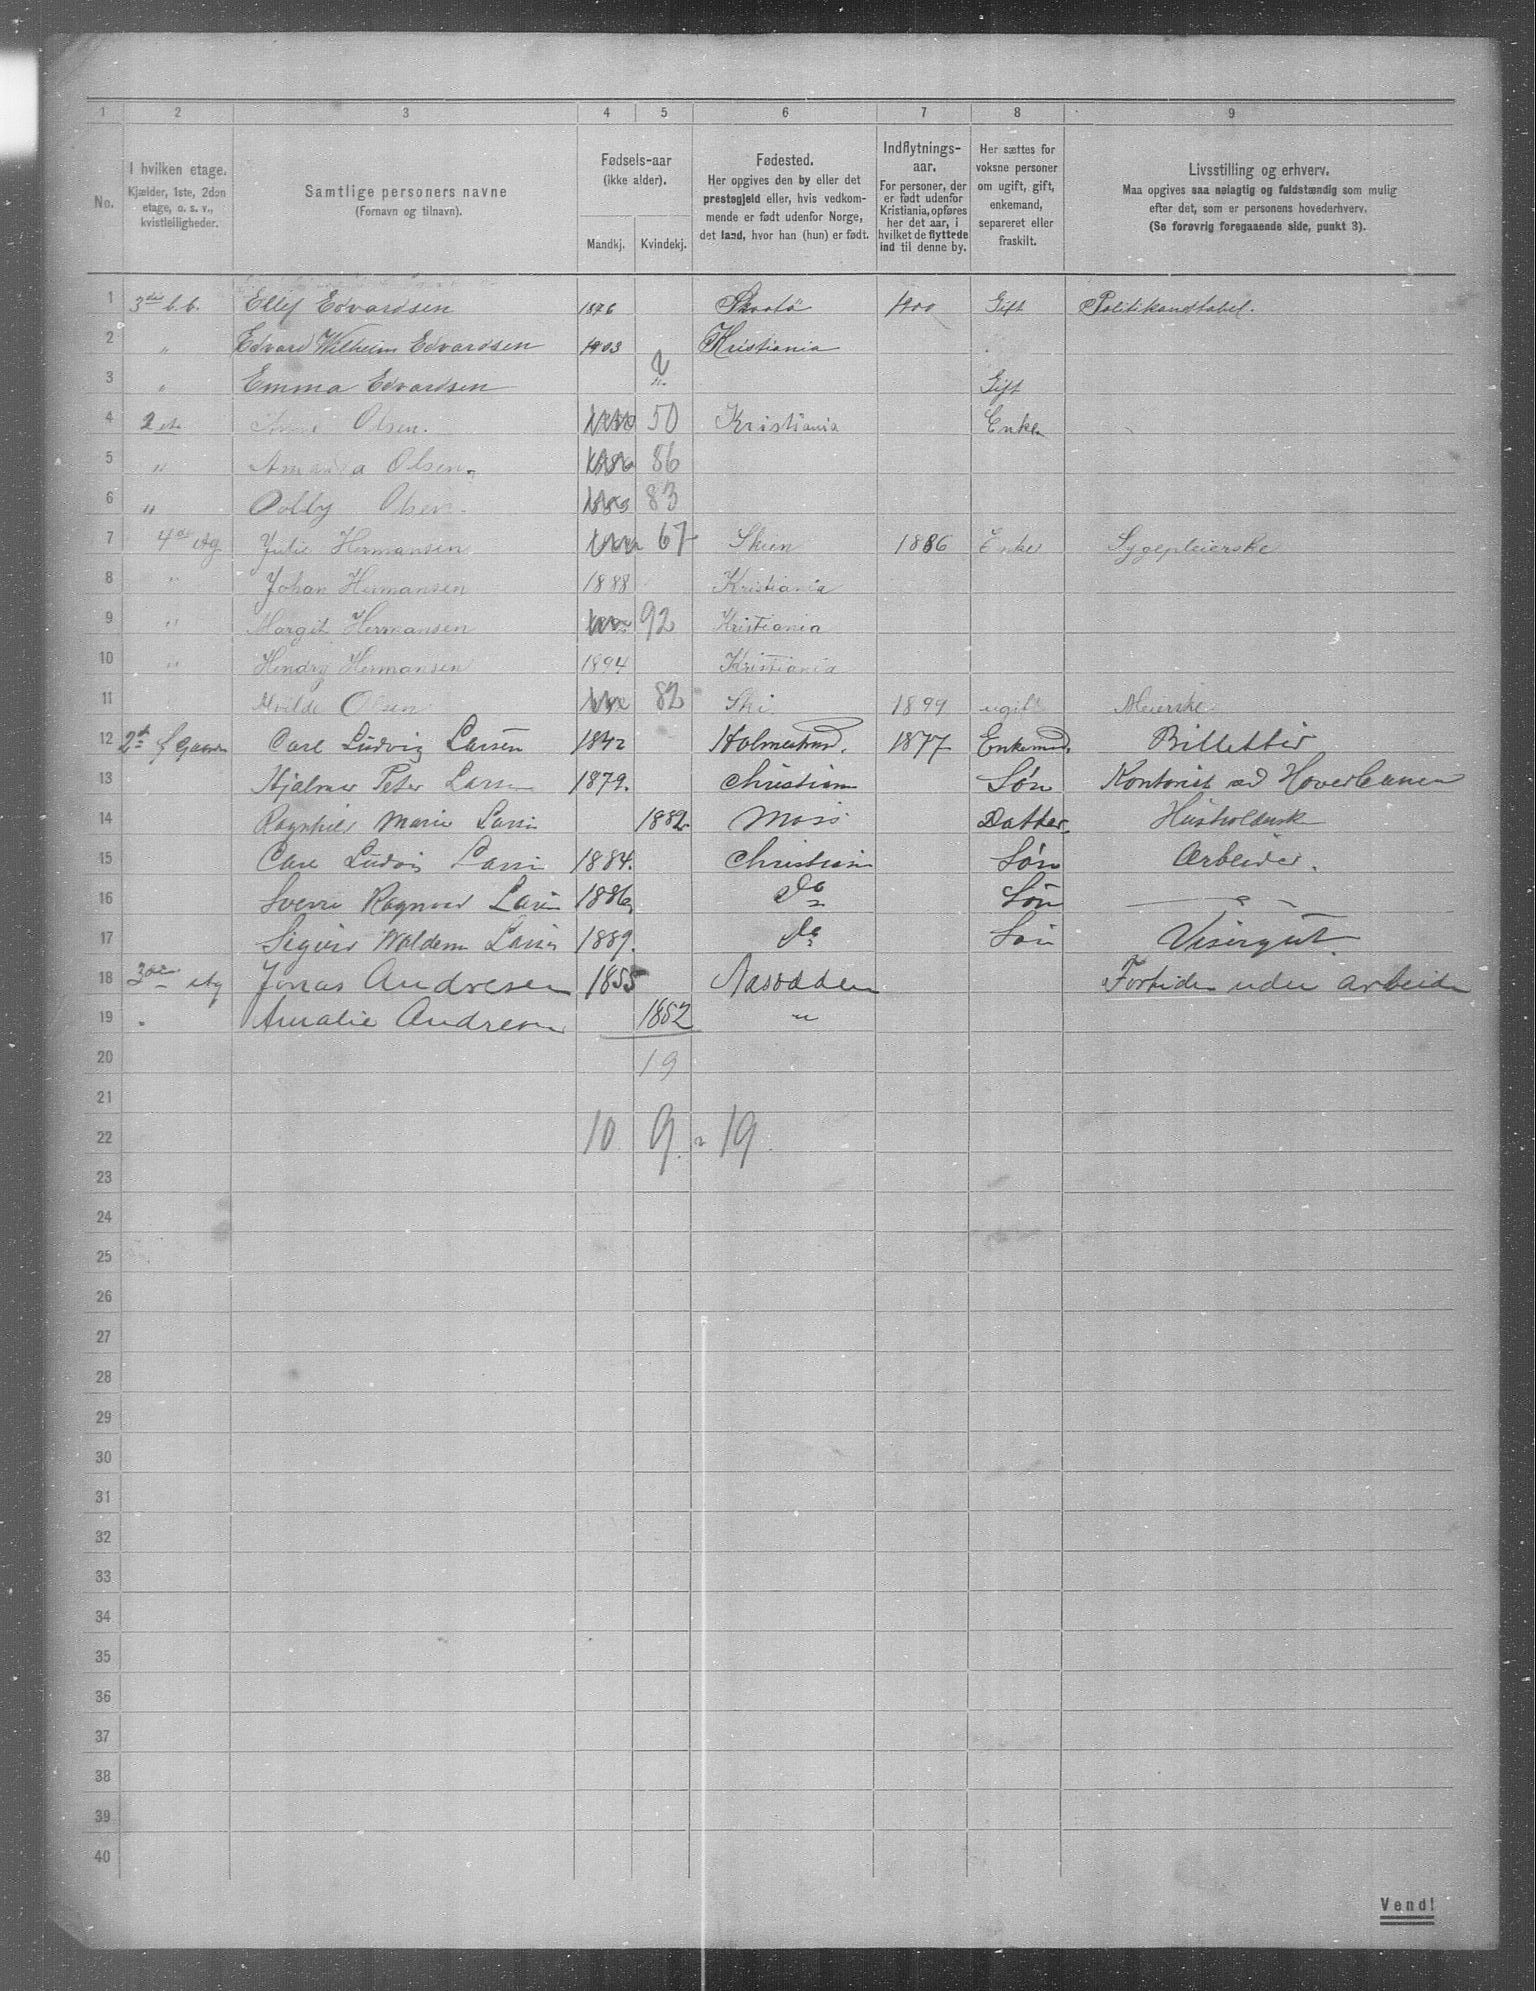 1 2 3 4 5 6 7 8 9
No.
I hvilken etage.
Kjælder, 1ste, 2den
etage, o. s. v.,
kvistleiligheder.
Samtlige personers navne
(Fornavn og tilnavn).
Fødsels-aar
(ikke alder).
Mandkj. Kvindekj.
Fødested.
Her opgives den by eller det
prestegjeld eller, hvis vedkom-
mende er født udenfor Norge,
det land, hvor han (hun) er født.
Indflytnings-
aar.
For personer, der
er født udenfor
Kristiania, opføres
her det aar, i
hvilket de flyttede
ind til denne by.
Her sættes for
voksne personer
om ugift, gift,
enkemand,
separeret eller
fraskilt.
Livsstilling og erhverv.
Maa opgives saa nøiagtig og fuldstændig som mulig
efter det, som er personens hovederhverv.
(Se forøvrig foregaaende side, punkt 3).
1 3die b.b. Ellef Edvardsen 1876 Skaatø 1900 Gift Politikonstabel.
2 " Edvard Wilhelm Edvardsen 1903 Kristiania
3 " Emma Edvardsen Gift
4 2 et. Olsen. 50 Kristiania Enke
5 " Amanda Olsen. 86
6 " Olsen. 83
7 4de Etg Julie Hermansen 67 Skien 1886 Enke Sygepleierske
8 " Johan Hermansen 1888 Kristiania
9 " Margit Hermansen 92 Kristiania
10 " Hendry Hermansen 1894 Kristiania
11 Olsen 82 Ski 1899 ugift Meierske
12 2d f Gaarden Carl Ludvig Larsen 1842 Holmestrand. 1877 Enkemd. Billettør
13 Hjalmar Peter Larsen 1879. Christiania Søn Kontorist ved Hovedbanen
14 Ragnhild Marie Larsen 1882 Moss Datter. Husholderske
15 Carl Ludvig Larsen 1884. Christiania Søn Arbeider.
16 Sverre Ragnvald Larsen 1886 do Søn — " —
17 Sigurd Waldem Larsen 1889. do Søn Visergut
18 3die etg Jonas Andresen 1855 Næsodden Fortiden uden arbeide
19 " Amalie Andresen 1852 "
20 19
21
22 10 9 = 19.
23
24
25
26
27
28
29
30
31
32
33
34
35
36
37
38
39
40
Vend!